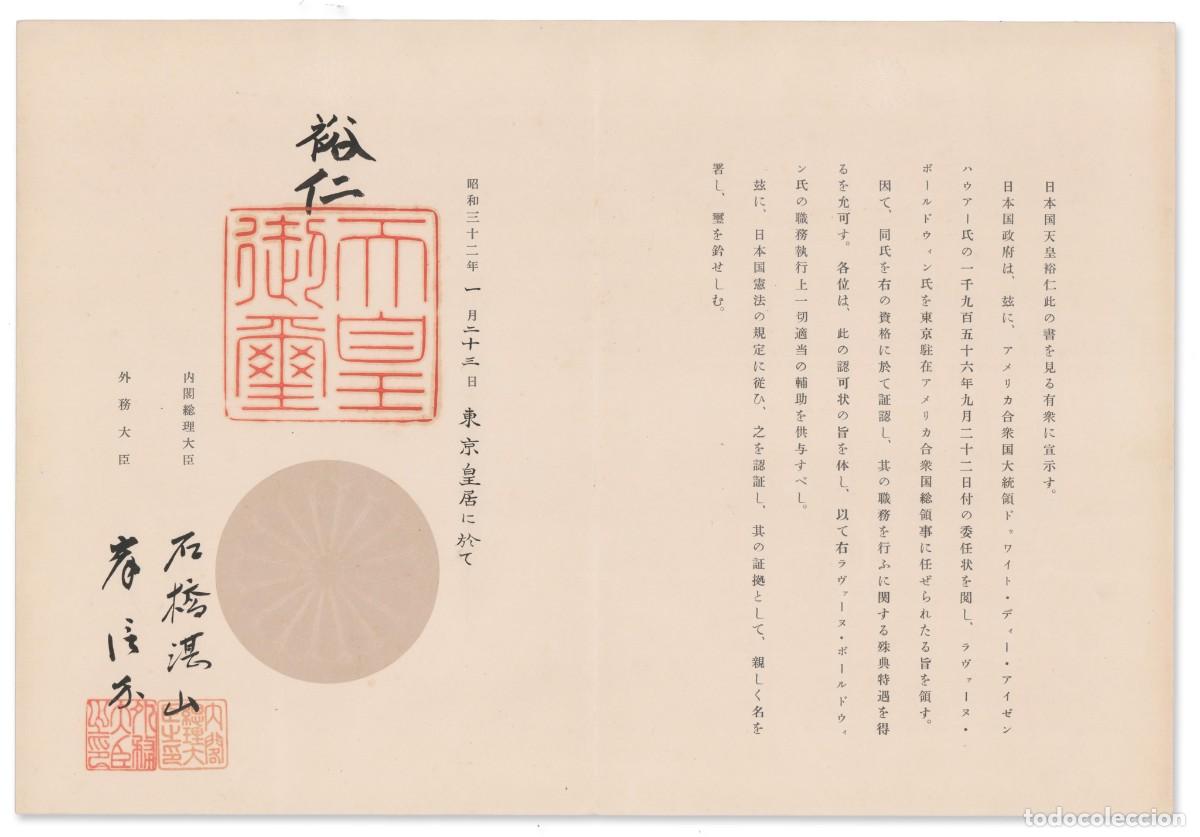 日本国天皇裕仁此の書を見る有衆に宣示す。
日本国政府は、玆に、アメリカ合衆国大統領ドゥワイト・ディー・アイゼン
ハウアー氏の一千九百五十六年九月二十二日付の委任状を閲し、ラヴァーヌ・
ボールドウィン氏を東京駐在アメリカ合衆国総領事に任ぜられたる旨を領す。
因て、同氏を右の資格に於て証認し、其の職務を行ふに関する殊典特遇を得
るを允可す。各位は、此の認可状の旨を体し、以て右ラヴァーヌ・ボールドウィ
ン氏の職務執行上一切適当の輔助を供与すべし。
玆に、日本国憲法の規定に従ひ、之を認証し、其の証拠として、親しく名を
署し、璽を鈐せしむ。
昭和三十二年一月二十三日東京皇居に於て
裕仁
天皇
御璽
内閣総理大臣 石橋湛山
内閣総理大臣之印
外務大臣 岸信介
外務大臣之印
todocoleccion